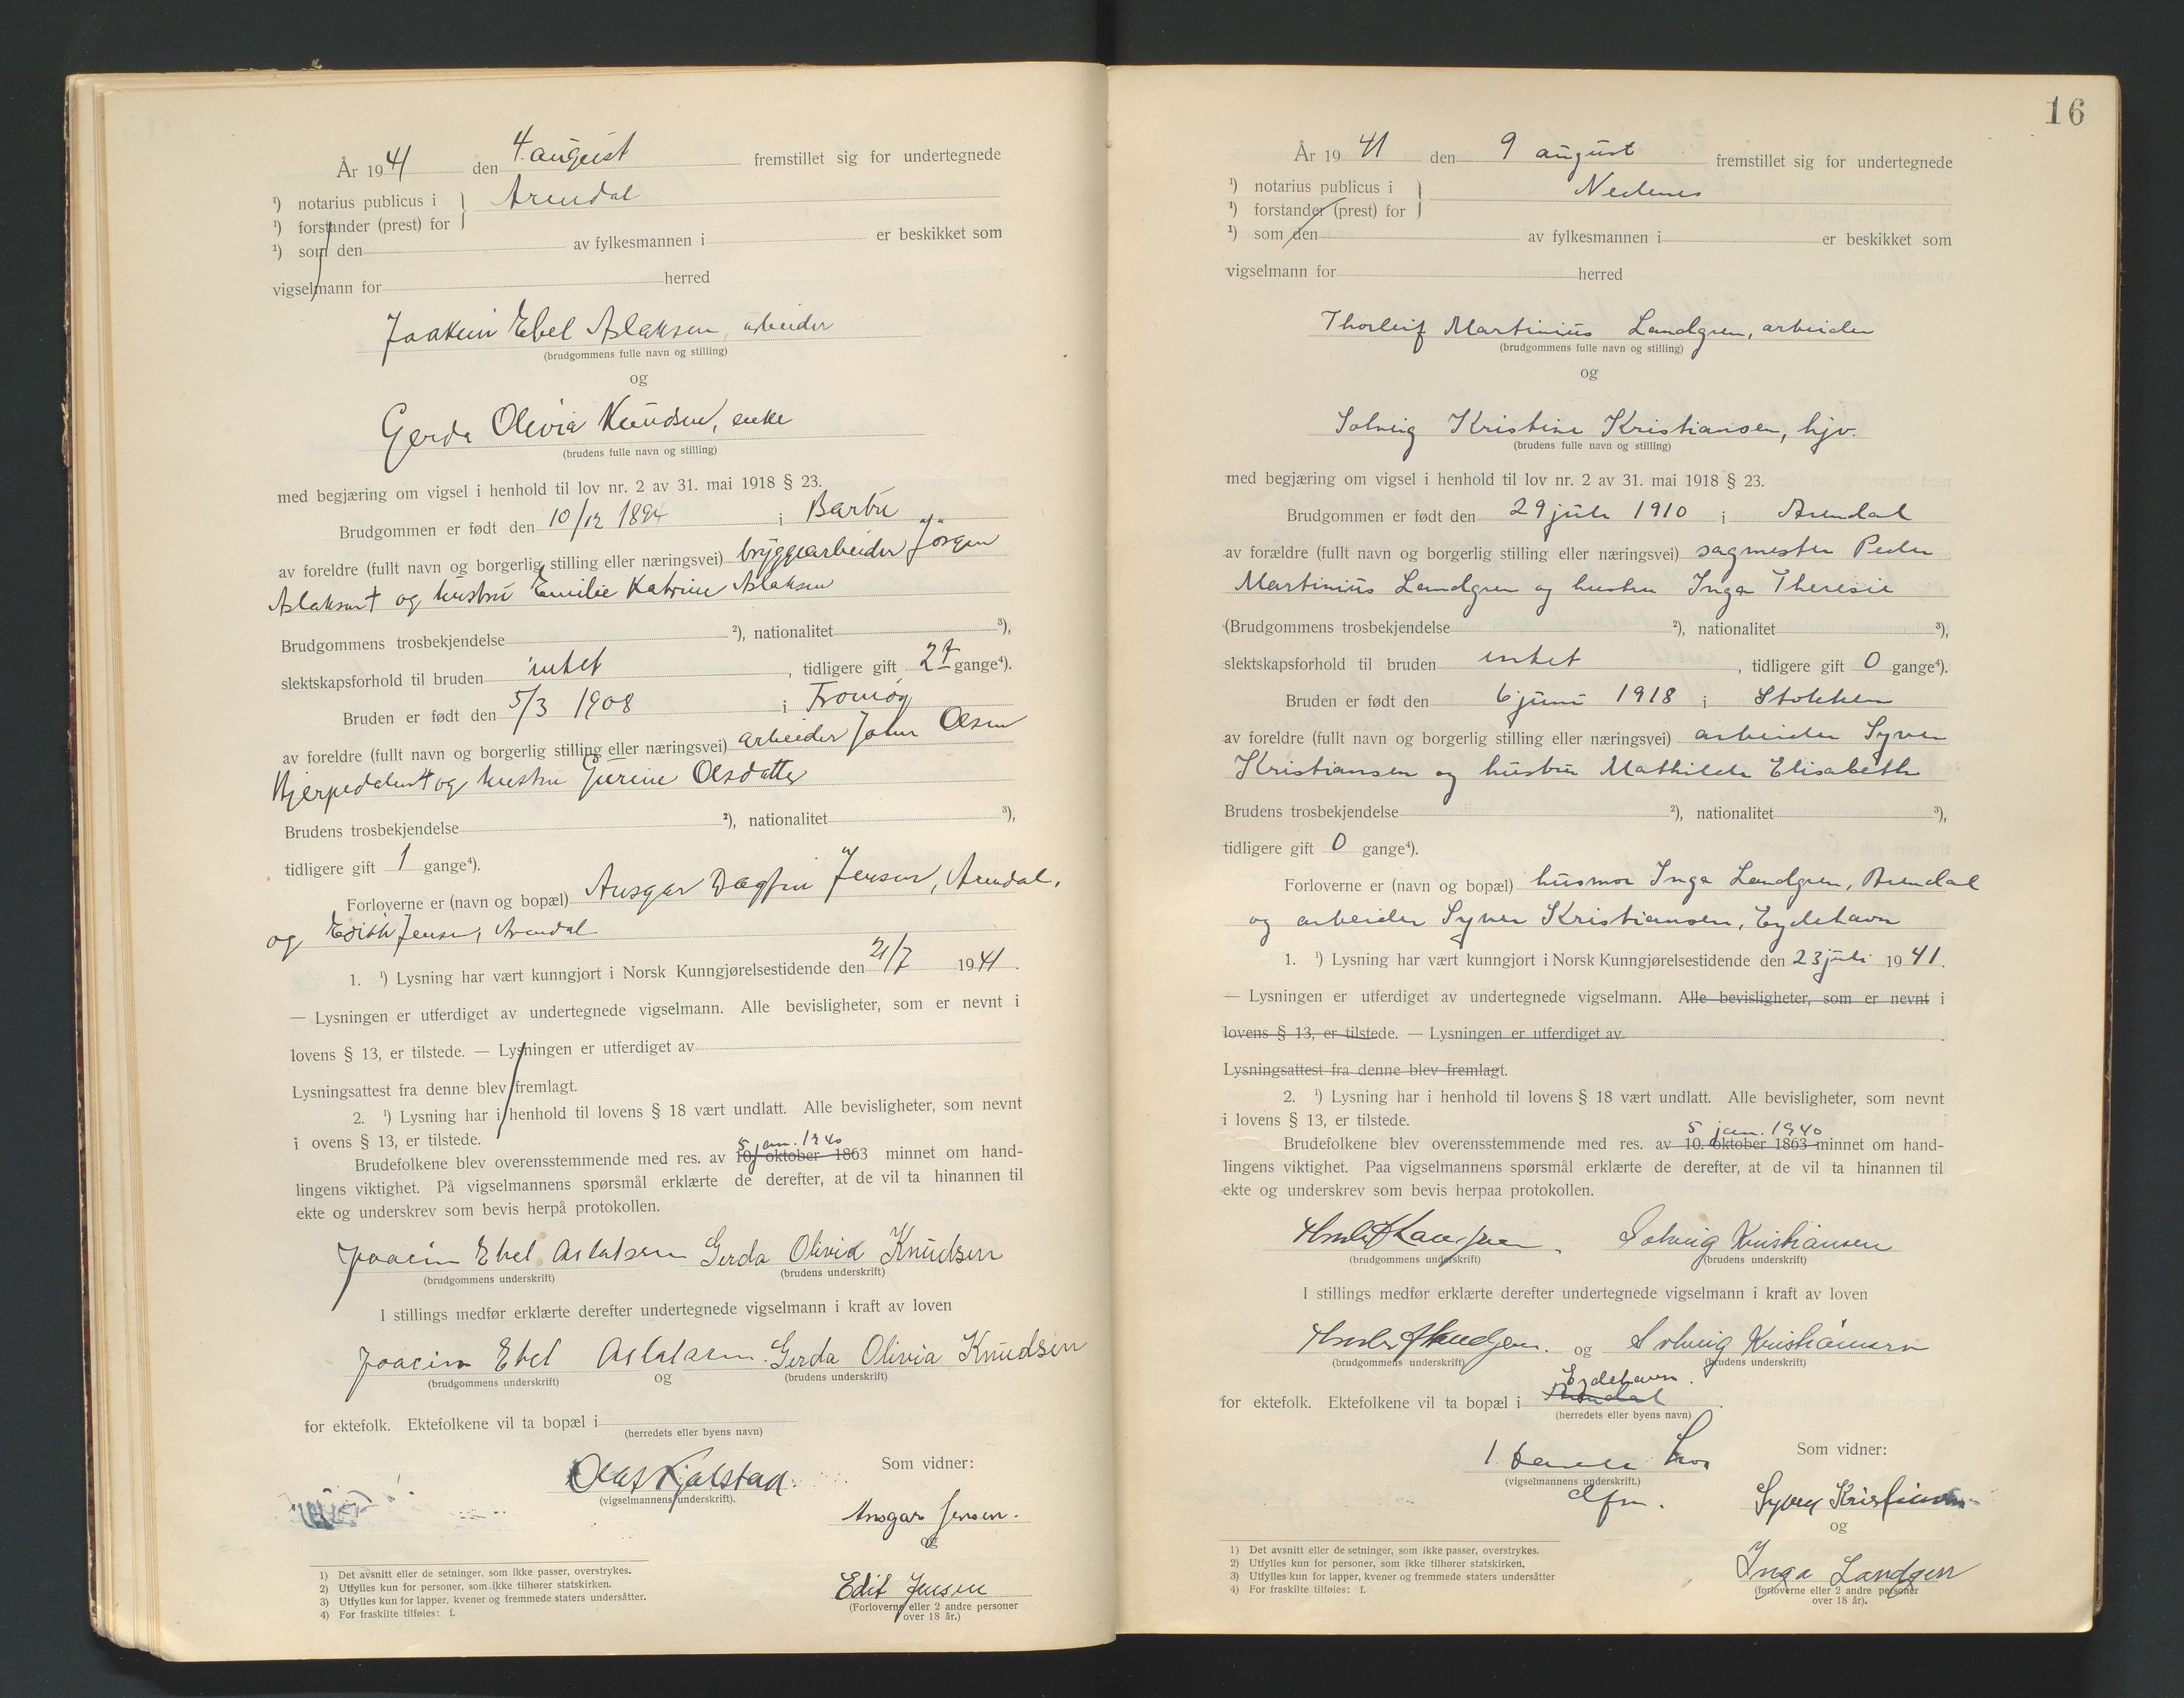 År 1941 den 4. august fremstillet sig for undertegnede
¹) notarius publicus i } Arendal
¹) forstander (prest) for
¹) som den av fylkesmannen i er beskikket som
vigselmann for herred
Joakim Ebel Aslaksen, arbeider
(brudgommens fulle navn og stilling)
og
Gerda Olivia Knudsen, enke
(brudens fulle navn og stilling)
med begjæring om vigsel i henhold til lov nr. 2 av 31. mai 1918 § 23.
Brudgommen er født den 10/12 1894 i Barbu
av foreldre (fullt navn og borgerlig stilling eller næringsvei) bryggearbeider Jørgen
Aslaksen† og hustru Emilie Katrine Aslaksen
Brudgommens trosbekjendelse ²), nationalitet ³),
slektskapsforhold til bruden intet, tidligere gift 2 f gange⁴).
Bruden er født den 5/3 1908 i Tromøy
av foreldre (fullt navn og borgerlig stilling eller næringsvei) arbeider John Olsen
og hustru Jurine Olsdatter
Brudens trosbekjendelse ²), nationalitet ³),
tidligere gift 1 gange⁴).
Forloverne er (navn og bopæl) Ansgar Dagfin Jensen, Arendal,
og Edith Jensen, Arendal
1. ¹) Lysning har vært kunngjort i Norsk Kunngjørelsestidende den 21/7 1941.
— Lysningen er utferdiget av undertegnede vigselmann. Alle bevisligheter, som er nevnt i
lovens § 13, er tilstede. — Lysningen er utferdiget av
Lysningsattest fra denne blev fremlagt.
2. ¹) Lysning har i henhold til lovens § 18 vært undlatt. Alle bevisligheter, som nevnt
i ovens § 13, er tilstede.
5 jan. 1940
Brudefolkene blev overensstemmende med res. av 10. oktober 1863 minnet om hand-
lingens viktighet. På vigselmannens spørsmål erklærte de derefter, at de vil ta hinannen til
ekte og underskrev som bevis herpå protokollen.
Joacim Ebel Aslaksen Gerda Olivia Knudsen
(brudgommens underskrift) (brudens underskrift)
I stillings medfør erklærte derefter undertegnede vigselmann i kraft av loven
Joacim Ebel Aslaksen. Gerda Olivia Knudsen
(brudgommens underskrift) og (brudens underskrift)
for ektefolk. Ektefolkene vil ta bopæl i
(herredets eller byens navn)
Som vidner:
Olaf Fjalstad.
(vigselmannens underskrift).
Ansgar Jensen.
og
Edit Jensen
(Forloverne eller 2 andre personer
over 18 år.)
1) Det avsnitt eller de setninger, som ikke passer, overstrykes.
2) Utfylles kun for personer, som ikke tilhører statskirken.
3) Utfylles kun for lapper, kvener og fremmede staters undersåtter.
4) For fraskilte tilføies: f.
16
År 1941 den 9 august fremstillet sig for undertegnede
¹) notarius publicus i } Nedenes
¹) forstander (prest) for
¹) som den av fylkesmannen i er beskikket som
vigselmann for herred
Thorleif Martinius Landgren, arbeider
(brudgommens fulle navn og stilling)
og
Solveig Kristine Kristiansen, hjv.
(brudens fulle navn og stilling)
med begjæring om vigsel i henhold til lov nr. 2 av 31. mai 1918 § 23.
Brudgommen er født den 29 juli 1910 i Arendal
av forældre (fullt navn og borgerlig stilling eller næringsvei) sagmester Peder
Martinius Landgren og hustru Inga Theresie
(Brudgommens trosbekjendelse ²), nationalitet ³),
slektskapsforhold til bruden intet, tidligere gift 0 gange⁴).
Bruden er født den 6 juni 1918 i Stokken
av foreldre (fullt navn og borgerlig stilling eller næringsvei) arbeider Syver
Kristiansen og hustru Mathilde Elisabeth
Brudens trosbekjendelse ²), nationalitet ³),
tidligere gift 0 gange⁴).
Forloverne er (navn og bopæl) husmor Inga Landgren, Arendal
og arbeider Syver Kristiansen, Eydehavn
1. ¹) Lysning har vært kunngjort i Norsk Kunngjørelsestidende den 23 juli 1941.
— Lysningen er utferdiget av undertegnede vigselmann. Alle bevisligheter, som er nevnt i
lovens § 13, er tilstede. — Lysningen er utferdiget av
Lysningsattest fra denne blev fremlagt.
2. ¹) Lysning har i henhold til lovens § 18 vært undlatt. Alle bevisligheter, som nevnt
i lovens § 13, er tilstede.
5 jan. 1940
Brudefolkene blev overensstemmende med res. av 10. oktober 1863 minnet om hand-
lingens viktighet. Paa vigselmannens spørsmål erklærte de derefter, at de vil ta hinannen til
ekte og underskrev som bevis herpaa protokollen.
Thorleif Landgren. Solveig Kristiansen
(brudgommens underskrift) (brudens underskrift)
I stillings medfør erklærte derefter undertegnede vigselmann i kraft av loven
Thorleif Landgren. og Solveig Kristiansen
(brudgommens underskrift) (brudens underskrift)
Eydehavn.
for ektefolk. Ektefolkene vil ta bopæl i Arendal.
(herredets eller byens navn)
Som vidner:
(vigselmannens underskrift.)
Syver Kristiansen
og
Inga Landgren
(forloverne eller 2 andre personer
over 18 år).
1) Det avsnitt eller de setninger, som ikke passer, overstrykes.
2) Utfylles kun for personer, som ikke tilhører statskirken.
3) Utfylles kun for lapper, kvener og fremmede staters undersåtter
4) For fraskilte tilføies: f.